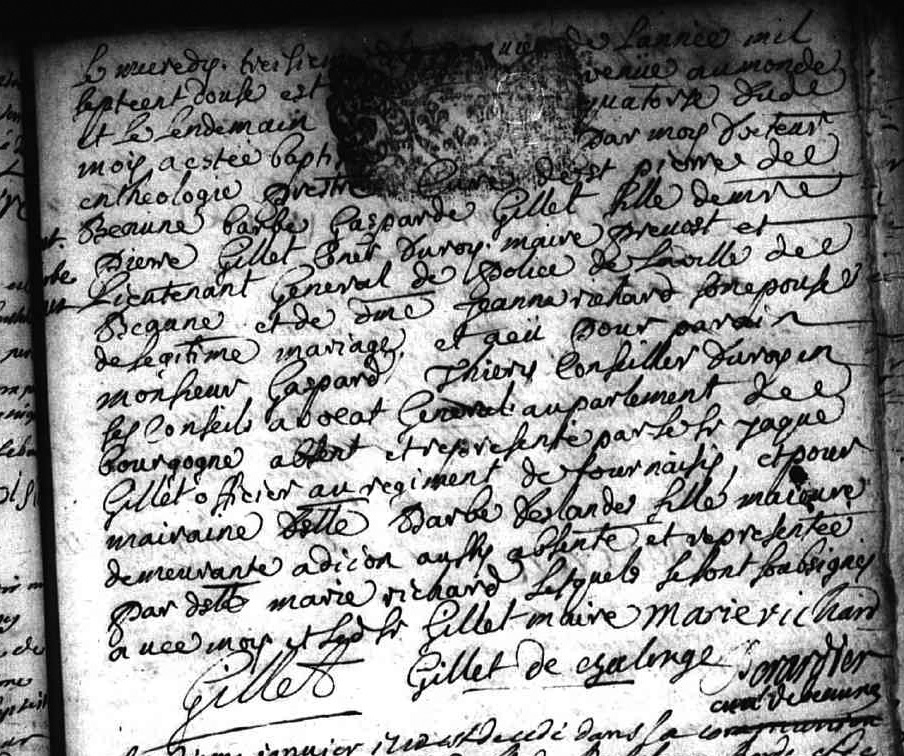 le mecredy treisiem de l'année mil
septcent douse est venüe au monde
et le lendemain quatorse dudt
mois a estée bapti par moy docteur
entheologie prestre Curé de st pierre de
Beaune barbe Gasparde Gillet fille de mre
pierre Gillet Coner du roy maire prevost et
Lieutenant General de police de la ville de
Beaune et de dme Jeanne richard son epouse
de legitime mariage, et a eü pour parain
monsieur Gaspard Thiery Conseiller du roy en
ses Conseils avocat General au parlement de
bourgogne absent et representé par le sr jaque
Gillet officier au regiment de Tournaisis, et pour
mairaine delle Barbe Deslandes fille majeure
demeurante a dicon aussy absente et representée
par delle marie richard lesquels se sont soubsignés
avec moy et led sr Gillet maire Marie richard
Gillet Gillet de chalonge
curé de beaune
janvier 1712 est decedé dans la communion